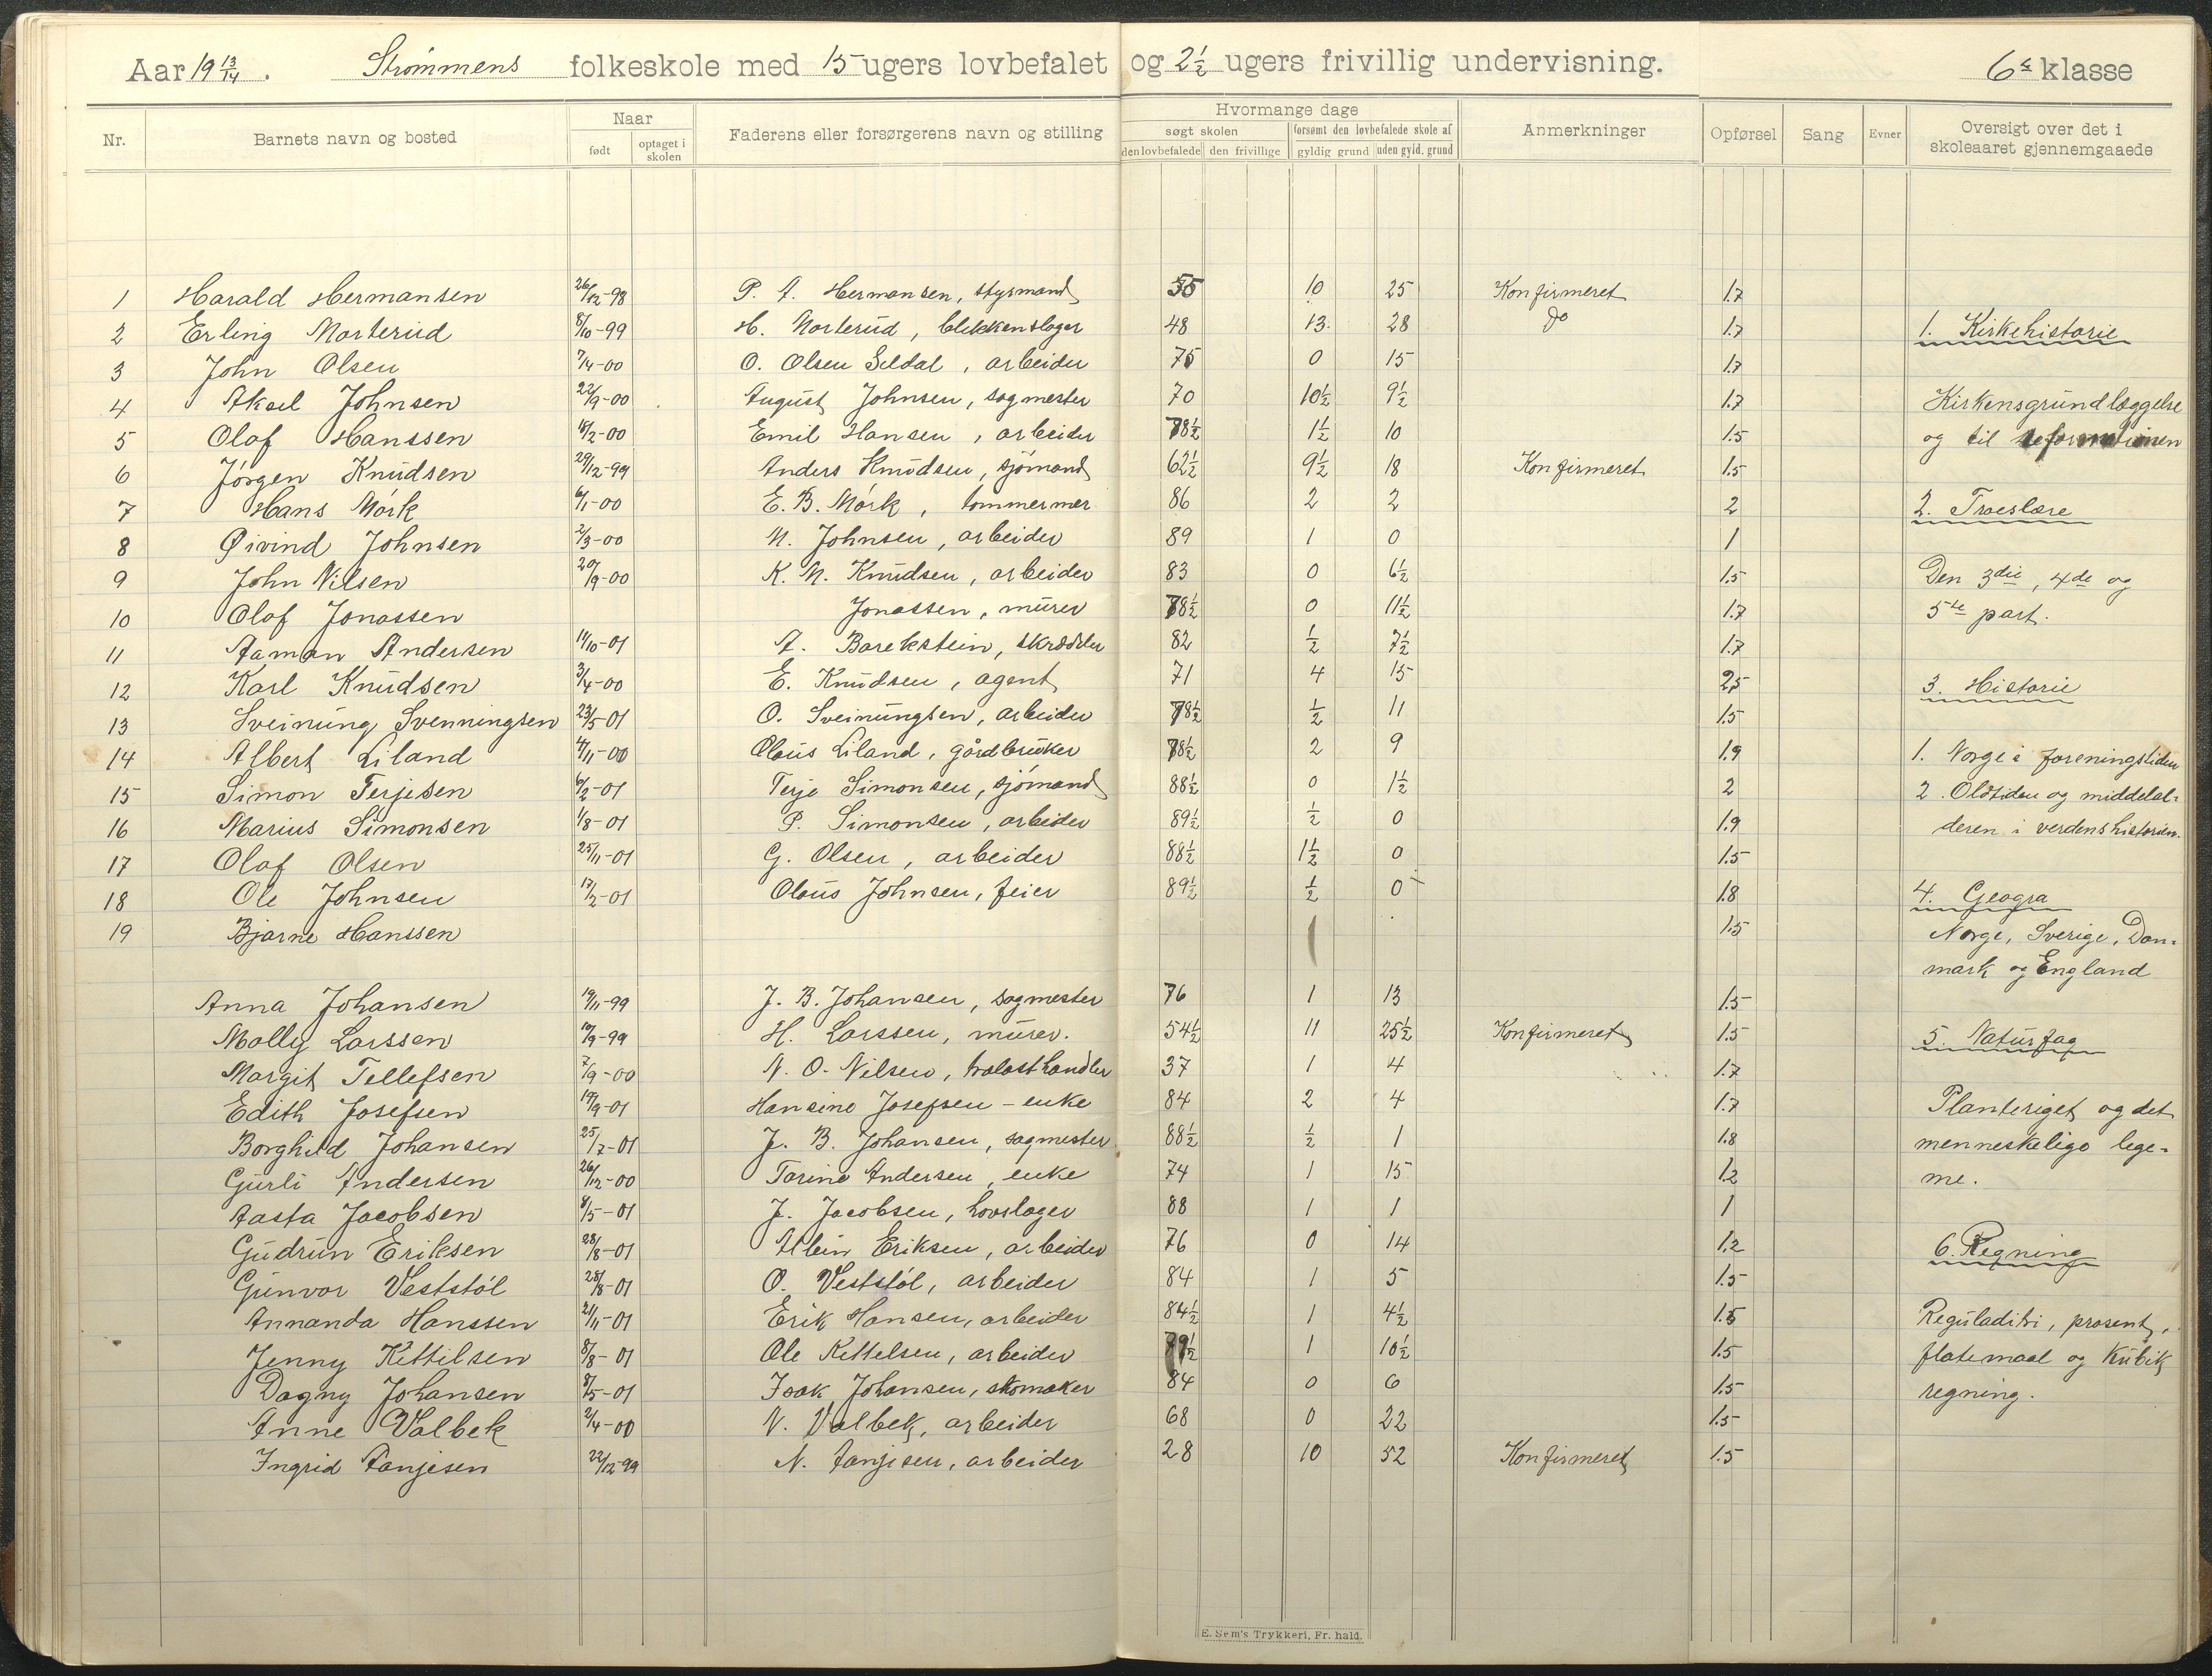 Aar 19 13/14. Strømmens folkeskole med 15 ugers lovbefalet og 2 1/2 ugers frivillig undervisning. 6te klasse
Nr. Barnets navn og bosted Naar født optaget i skolen Faderens eller forsørgerens navn og stilling Hvormange dage søgt skolen den lovbefalede den frivillige forsømt den lovbefalede skole af gyldig grund uden gyld. grund Anmerkninger Opførsel Sang Evner Oversigt over det i skoleaaret gjennemgaaede
1 Harald Hermansen 26/12-98 P. A. Hermansen, styrmand 55 10 25 Konfirmeret 1.7
2 Erling Morterud 8/10-99 H. Morterud, blikkenslager 48 13 28 Do 1.7 1. Kirkehistorie
3 John Olsen 7/4-00 O. Olsen Seldal, arbeider 75 0 15 1.7
4 Aksel Johnsen 22/9-00 August Johnsen, sagmester 70 10 1/2 9 1/2 1.7 Kirkensgrundlæggelse
5 Olaf Hanssen 18/2-00 Emil Hansen, arbeider 78 1/2 1 1/2 10 1.5 og til reformationen
6 Jørgen Knudsen 29/12-99 Anders Knudsen, sjømand 62 1/2 9 1/2 18 Konfirmeret 1.5
7 Hans Mørk 6/1-00 E. B. Mørk, tømmermer 86 2 2 2 2. Troeslære
8 Øivind Johnsen 2/3-00 N. Johnsen, arbeider 89 1 0 1
9 John Nilsen 20/9-00 K. N. Knudsen, arbeider 83 0 6 1/2 1.5 Den 3die, 4de og
10 Olaf Jonassen Jonassen, murer 78 1/2 0 11 1/2 1.7 5te part.
11 Aaman Andersen 14/10-01 A. Barekstein, skrædder 82 1/2 7 1/2 1.7
12 Karl Knudsen 3/4-00 E. Knudsen, agent 71 4 15 2.5 3. Historie
13 Sveinung Svenningsen 23/5-01 O. Sveinungsen, arbeider 78 1/2 1/2 11 1.5
14 Albert Liland 4/11-00 Olaus Liland, gårdbruker 78 1/2 2 9 1.9 1. Norge i foreningstiden
15 Simon Terjesen 6/2-01 Terje Simonsen, sjømand 88 1/2 0 1 1/2 2 2. Oldtiden og middelal-
16 Marius Simonsen 1/8-01 P. Simonsen, arbeider 89 1/2 1/2 0 1.9 deren i verdenshistorien.
17 Olaf Olsen 25/11-01 G. Olsen, arbeider 88 1/2 1 1/2 0 1.5
18 Ole Johnsen 17/2-01 Olaus Johnsen, feier 89 1/2 1/2 0 1.8 4. Geogra
19 Bjarne Hanssen 1.5 Norge, Sverige, Dan-
mark og England
Anna Johansen 19/11-99 J. B. Johansen, sagmester 76 1 13 1.5
Molly Larssen 19/9-99 H. Larssen, murer. 54 1/2 11 25 1/2 Konfirmeret 1.5 5. Naturfag
Margit Tellefsen 7/9-00 N. O. Nilsen, trælasthandler 37 1 4 1.7
Edith Josefsen 19/9-01 Hansine Josefsen - enke 84 2 4 1.7 Planteriget og det
Borghild Johansen 25/7-01 J. B. Johansen, sagmester 88 1/2 1/2 1 1.8 menneskelige lege-
Gurli Andersen 26/12-00 Torine Andersen, enke 74 1 15 1.2 me.
Aasta Jacobsen 8/5-01 J. Jacobsen, hovslager 88 1 1 1
Gudrun Eriksen 28/8-01 Albin Eriksen, arbeider 76 0 14 1.2 6. Regning
Gunvor Veststøl 28/8-01 O. Veststøl, arbeider 84 1 5 1.5
Annanda Hanssen 21/11-01 Erik Hansen, arbeider 84 1/2 1 4 1/2 1.5 Reguladitri, prosent,
Jenny Kittilsen 8/8-01 Ole Kittelsen, arbeider 79 1/2 1 10 1/2 1.5 flatemaal og kubik
Dagny Johansen 8/5-01 Isak Johansen, skomaker 84 0 6 1.5 regning.
Anne Valbek 2/4-00 N. Valbek, arbeider 68 0 22 1.5
Ingrid Aanjesen 22/12-99 N. Aanjesen, arbeider 28 10 52 Konfirmeret 1.5
E. Sem's Trykkeri, Fr. hald.